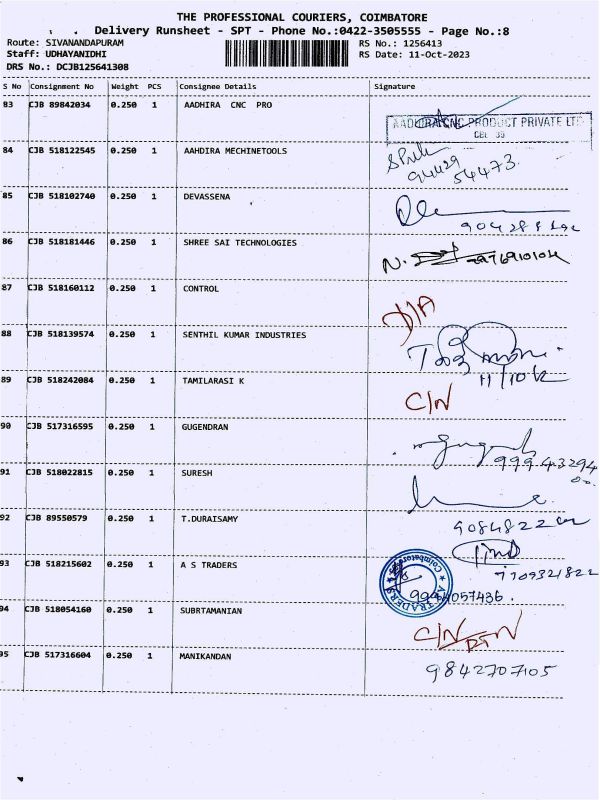 THE PROFESSIONAL COURIERS, COIMBATORE
Delivery Runsheet - SPT - Phone No.:0422-3505555 - Page No.:8
Route: SIVANANDAPURAM RS No.: 1256413
Staff: UDHAYANIDHI RS Date: 11-Oct-2023
DRS No.: DCJB125641308
S No Consignment No Weight PCS Consignee Details Signature
83 CJB 89842034 0.250 1 AADHIRA CNC PRO
AADHIRA CNC PRODUCT PRIVATE LTD
CBE 39
84 CJB 518122545 0.250 1 AAHDIRA MECHINETOOLS
94429
54473
85 CJB 518102740 0.250 1 DEVASSENA
86 CJB 518181446 0.250 1 SHREE SAI TECHNOLOGIES
87 CJB 518160112 0.250 1 CONTROL
D/A
88 CJB 518139574 0.250 1 SENTHIL KUMAR INDUSTRIES
89 CJB 518242084 0.250 1 TAMILARASI K
C/N
90 CJB 517316595 0.250 1 GUGENDRAN
999 43294
91 CJB 518022815 0.250 1 SURESH
92 CJB 89550579 0.250 1 T.DURAISAMY
93 CJB 518215602 0.250 1 A S TRADERS
7709321822
Coimbatore
9994057436.
94 CJB 518054160 0.250 1 SUBRTAMANIAN
C/N
95 CJB 517316604 0.250 1 MANIKANDAN
9842707105